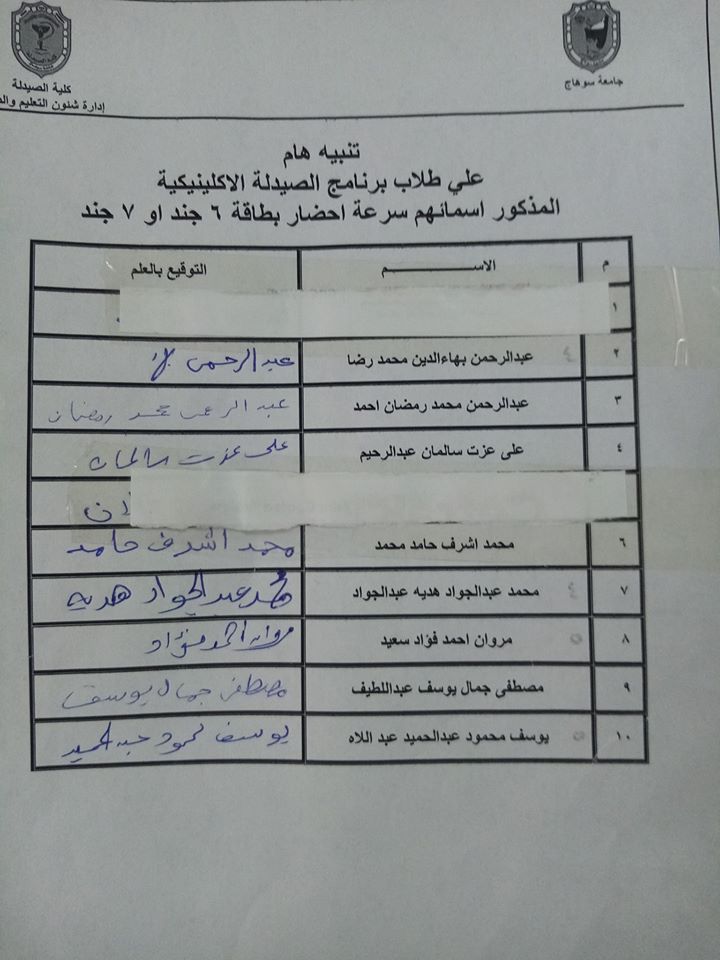 جامعة سوهاج
كلية الصيدلة
إدارة شئون التعليم
تنبيه هام
علي طلاب برنامج الصيدلة الاكلينيكية
المذكور اسمائهم سرعة احضار بطاقة ٦ جند او ٧ جند
م الاســـــــم التوقيع بالعلم
١
٢ عبدالرحمن بهاءالدين محمد رضا عبدالرحمن
٣ عبدالرحمن محمد رمضان احمد عبد الرحمن محمد رمضان
٤ على عزت سالمان عبدالرحيم على عزت سالمان
٦ محمد اشرف حامد محمد محمد اشرف حامد
٧ محمد عبدالجواد هديه عبدالجواد محمد عبدالجواد هديه
٨ مروان احمد فؤاد سعيد مروان احمد فؤاد
٩ مصطفى جمال يوسف عبداللطيف مصطفى جمال يوسف
١٠ يوسف محمود عبدالحميد عبد اللاه يوسف محمود عبدالحميد